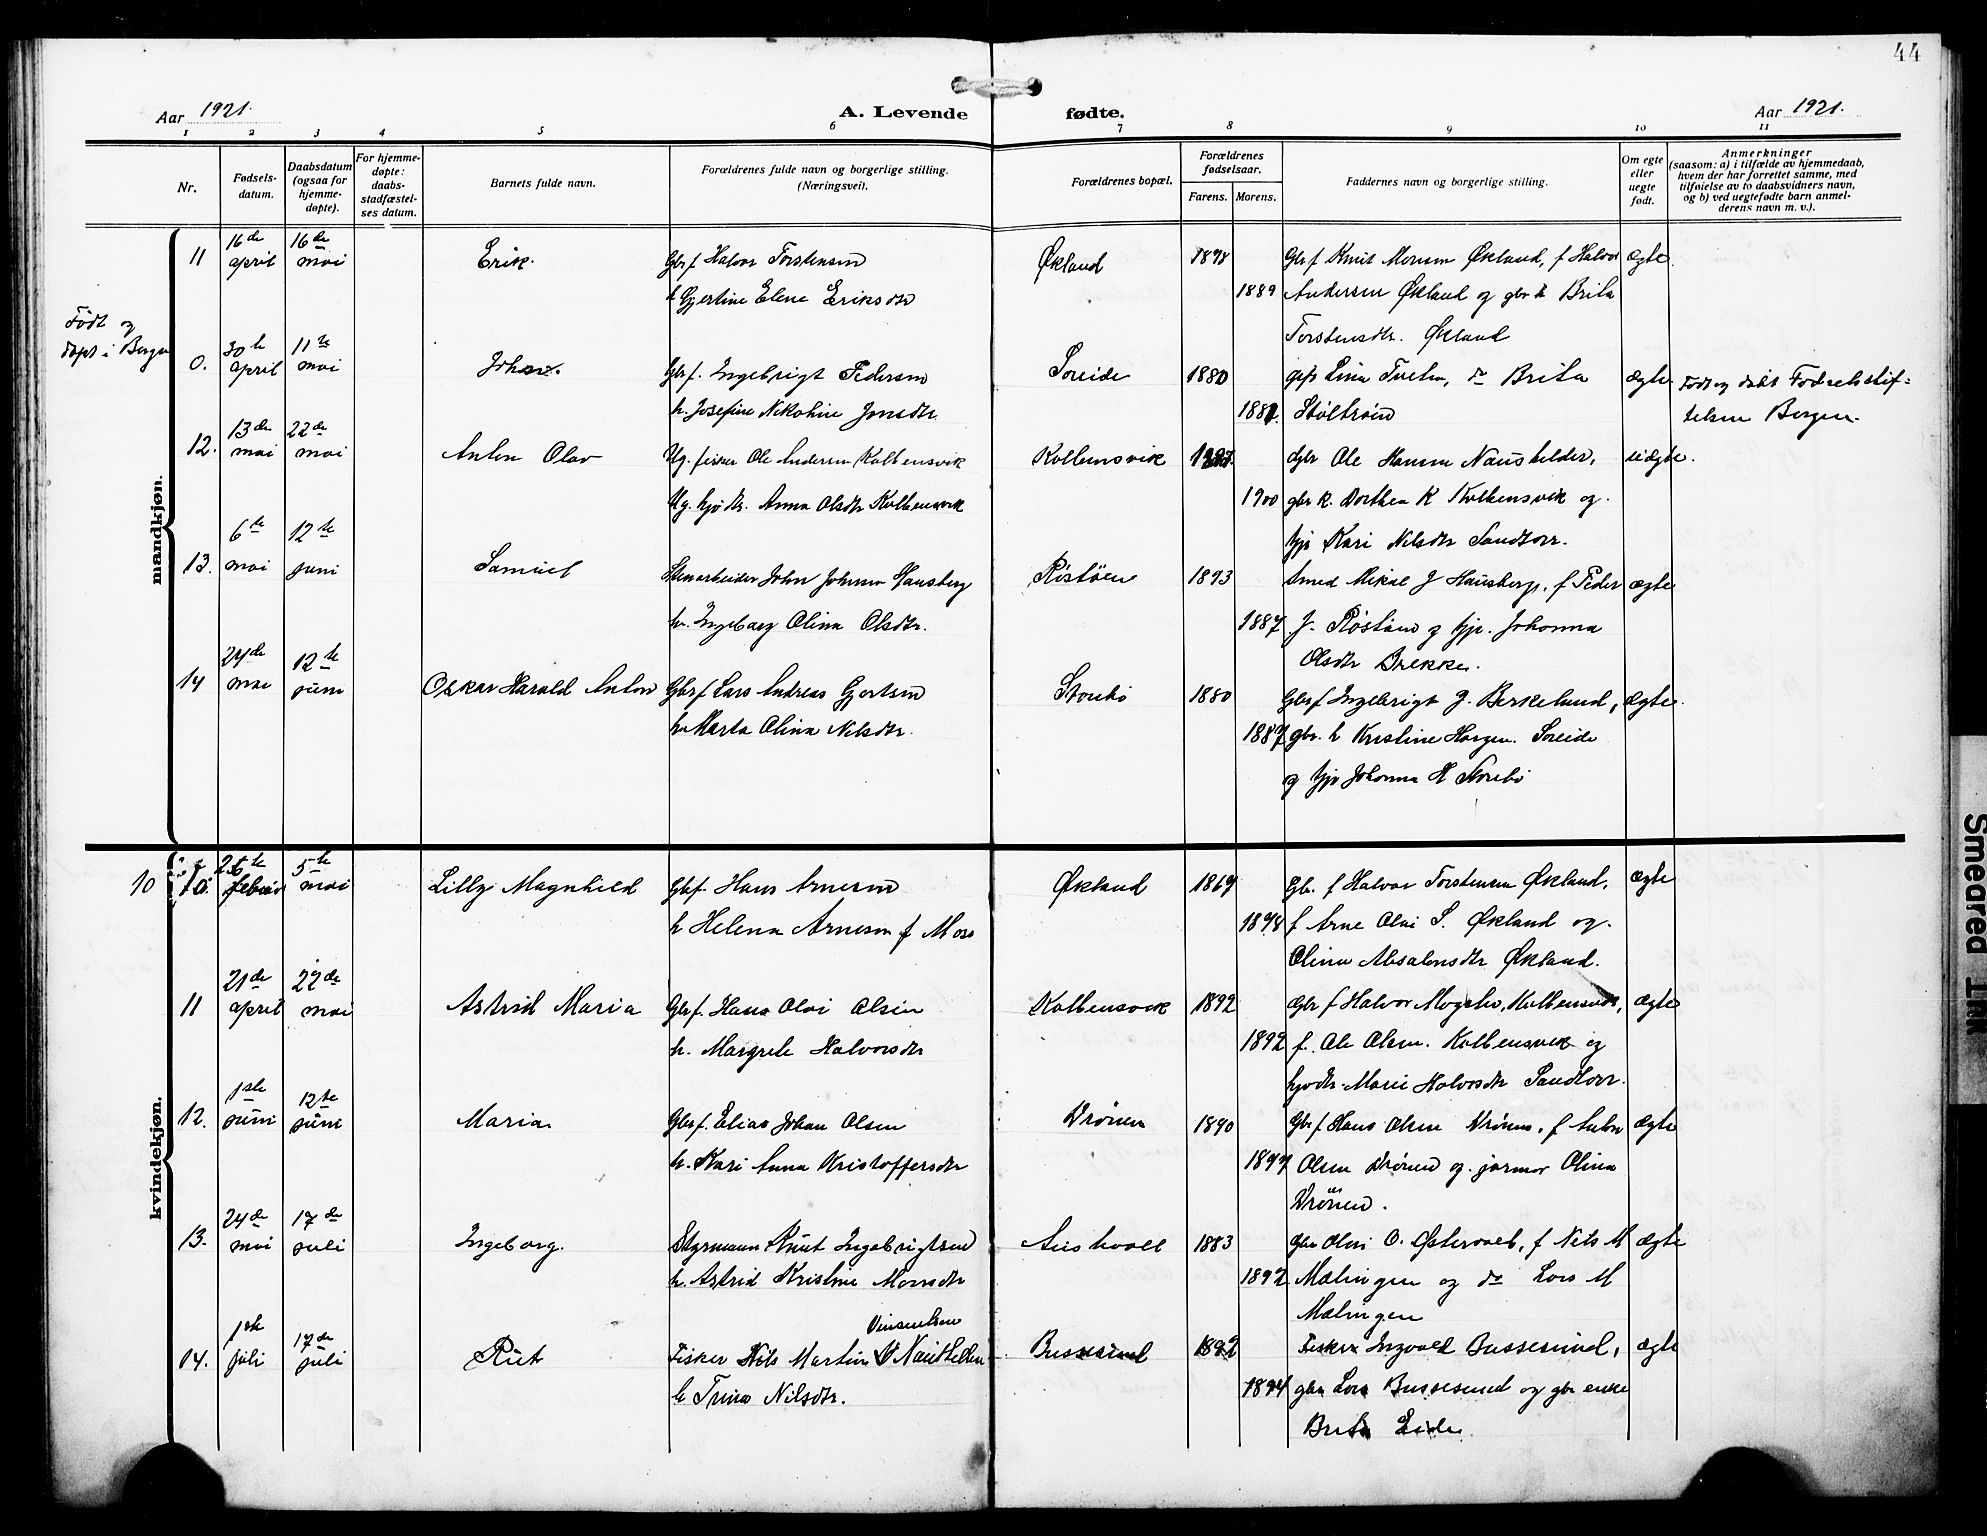 44
Aar 1921.
A. Levende fødte.
Aar 1921.
1 2 3 4 5 6 7 8 9 10 11
Nr.
Fødsels-
datum.
Daabsdatum
(ogsaa for
hjemme-
døpte).
For hjemme-
døpte:
daabs-
stadfæstel-
ses datum.
Barnets fulde navn.
Forældrenes fulde navn og borgerlige stilling.
(Næringsvei).
Forældrenes bopæl.
Forældrenes
fødselsaar.
Farens. Morens.
Faddernes navn og borgerlige stilling.
Om egte
eller
uegte
født.
Anmerkninger
(saasom: a) i tilfælde av hjemmedaab,
hvem der har forrettet samme, med
tilføielse av to daabsvidners navn,
og b) ved uegtefødte barn anmel-
derens navn m. v.).
mandkjøn.
11 16de april 16de mai Erik. Gbrf Halvor Torstensen Økland 1898 Gbr f Knut Monsen Økland, f Halvor ægte.
h Gjertine Elene Eriksdtr 1889 Andersen Økland og gbr k Brita
Torstensdtr. Økland
Født og
døpt i Bergen
0. 30te april 11te mai Johan. Gbr f. Ingebrigt Pedersen Søreide 1880 Lina, do Brita ægte Født og døbt Fødselsstif-
h. Josefine Nikoline Jonsdtr. telsen Bergen.
12. 13de mai 22de mai Anton Olav Ug. fisker Ole Andersen Kolbensvik Kolbensvik gbr Ole Hansen Naustheller, uægte.
Ug. Anna Olsdtr Kolbensvik 1900 gbr k. Dorthea K Kolbensvik og
Kari Nilsdtr Sandtorr.
13. 6te mai 12te juni Samuel Stenarbeider John Johnsen Hausberg Røstøen 1893 Smed Mikal J Hausberg, f Peder ægte
h. Ingeborg Olina Olsdtr. 1887 J. Røstøen og Johanna
Olsdtr Brekke.
14 24de mai 12te juni Oskar Harald Anton Gbr f Lars Andreas Gjertsen Storebø 1880 Gbr f Ingebrigt J. Berkeland, ægte.
h Marta Olina Nilsdtr. 1887 gbr. h Kristine Søreide
og Johanna H Storebø
kvindekjøn.
10 10. februar 5te mai Lilly Magnhild Gbf. Hans Arnesen Økland 1869 Gbr. f Halvor Torstensen Økland, ægte
h Helena Arnesen f Moss 1878 f Arne Olai S. Økland og
Olina Absalonsdtr Økland.
11 21de april 22de mai Astrid Maria Gbr f. Hans Olai Olsen Kolbensvik 1892 Gbr f Halvor Mogstø, Kolbensvik, ægte
h. Margrete Halvorsdtr 1892 f. Ole Olsen. Kolbensvik og
Marie Halvorsdtr Sandtorr.
12. 1ste juni 12te juni Maria Gbr f. Elias Johan Olsen Drønen 1890 Gbr f Hans Olsen Drønen, f Anton ægte
h. Kari Anna Kristoffersdtr 1899 Olsen Drønen og jormor Olina
Drønen.
13. 24de mai 17de juli Ingeborg. Styrmann Knut Ingebrigtsen Austvoll 1883 Gbr Olai O. Østervold, f Nils M ægte
h. Astrid Kristine Monsdtr 1892 Mælingen og do Lars M
Mælingen
Vinsentsen
14. 1ste juli 17de juli Rut Fisker Nils Martin V Naustheller Bussesund 1892 Fisker Ingvald Bussesund, ægte
h Trina Nilsdtr. 1894 gbr Lars Bussesund og gbr enke
Brita Eide.
Smeared Ink